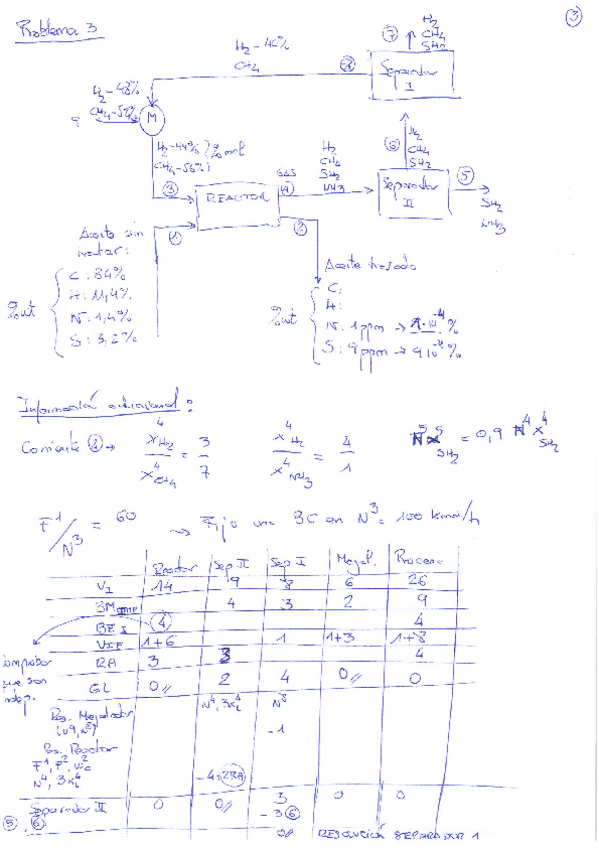 Problema 3
3
H₂
CH₄
SH₂
7
H₂ - 46%
CH₄
8
Separador
I
H₂ - 48%
CH₄ - 52%
9
M
H₂ - 44% } % mol
CH₄ - 56%
3
6
H₂
CH₄
SH₂
H₂
CH₄
SH₂
NH₃
GAS
4
REACTOR
Separador
II
5
SH₂
NH₃
1
2
Aceite sin
tratar:
% wt
C: 84%
H: 11,4%
N: 1,4%
S: 3,2%
Aceite tratado
% wt
C:
H:
N: 1 ppm → 1·10⁻⁴ %
S: 9 ppm → 9·10⁻⁴ %
Información adicional:
Corriente 4 → x⁴H₂ / x⁴CH₄ = 3/7 x⁴H₂ / x⁴NH₃ = 4/1 N⁵x⁵SH₂ = 0,9 N⁴x⁴SH₂
F¹/N³ = 60 → Fijo una BC en N³ = 100 kmol/h
Reactor Sep II Sep I Mezcl. Proceso
VI 14 9 8 6 26
BM 4 3 2 9
4 4
VIF 1+6 1 1+3 1+8
RA 3 3 4
GL 0 2 4 0 0
comprobar
que son
indep.
N⁴, 3x⁴ N⁸
Res. Mezclador
-1
Res. Reactor
F¹, F²,
N⁴, 3x⁴
-4+2RA
Separador II 0 0 3 0 0
5, 6 -3 6
0 RESOLUCIÓN SEPARADOR 1